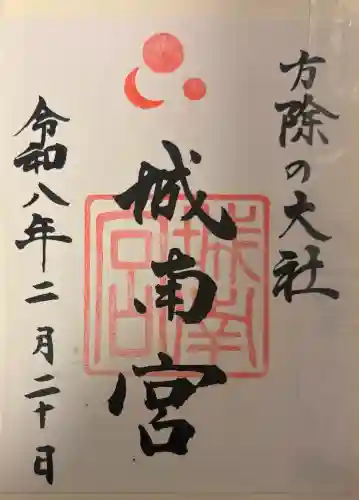 方除の大社
城南宮
城南宮印
令和八年二月二十日